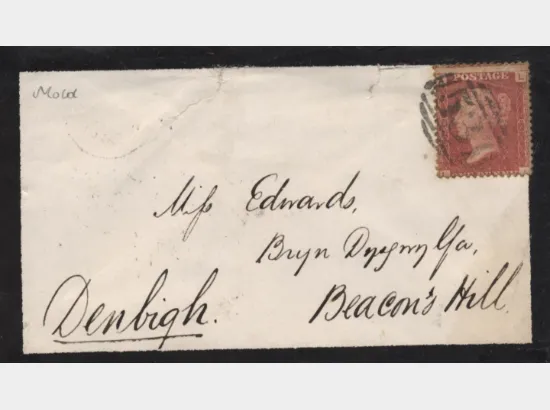 Mold
POSTAGE
Miss Edwards,
Bryn
Beacon's Hill.
Denbigh.